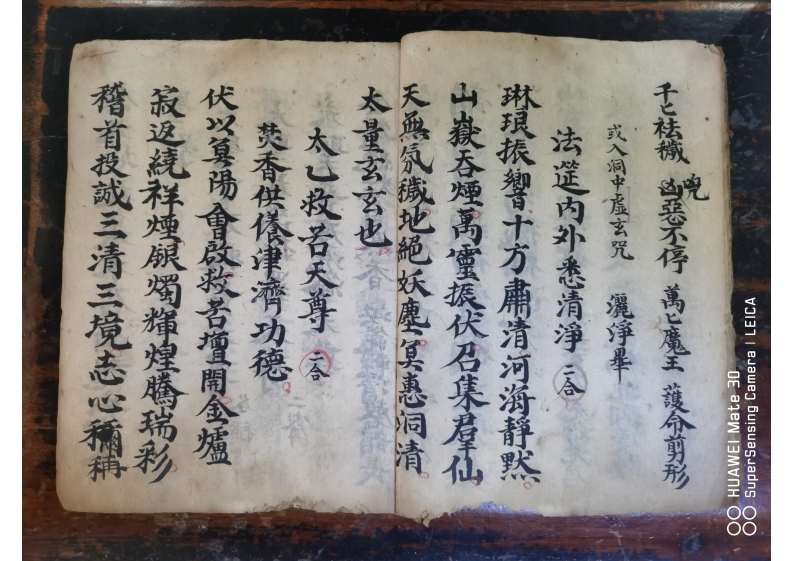 千匕祛穢 凶惡不停 萬匕魔王 護命剪形
咒
或入洞中虛玄咒 灑淨畢
法筵內外悉清淨 二合
琳琅振響十方肅清河海靜默
山嶽吞煙萬靈振伏召集羣仙
天無氛穢地絕妖塵冥惠洞清
太量玄玄也
太乙救苦天尊 二合
焚香供養津濟功德
伏以真陽會啟救苦壇開金爐
寂返繞祥煙銀燭輝煌騰瑞彩
稽首投誠三清三境志心稱
HUAWEI Mate 30
SuperSensing Camera | LEICA